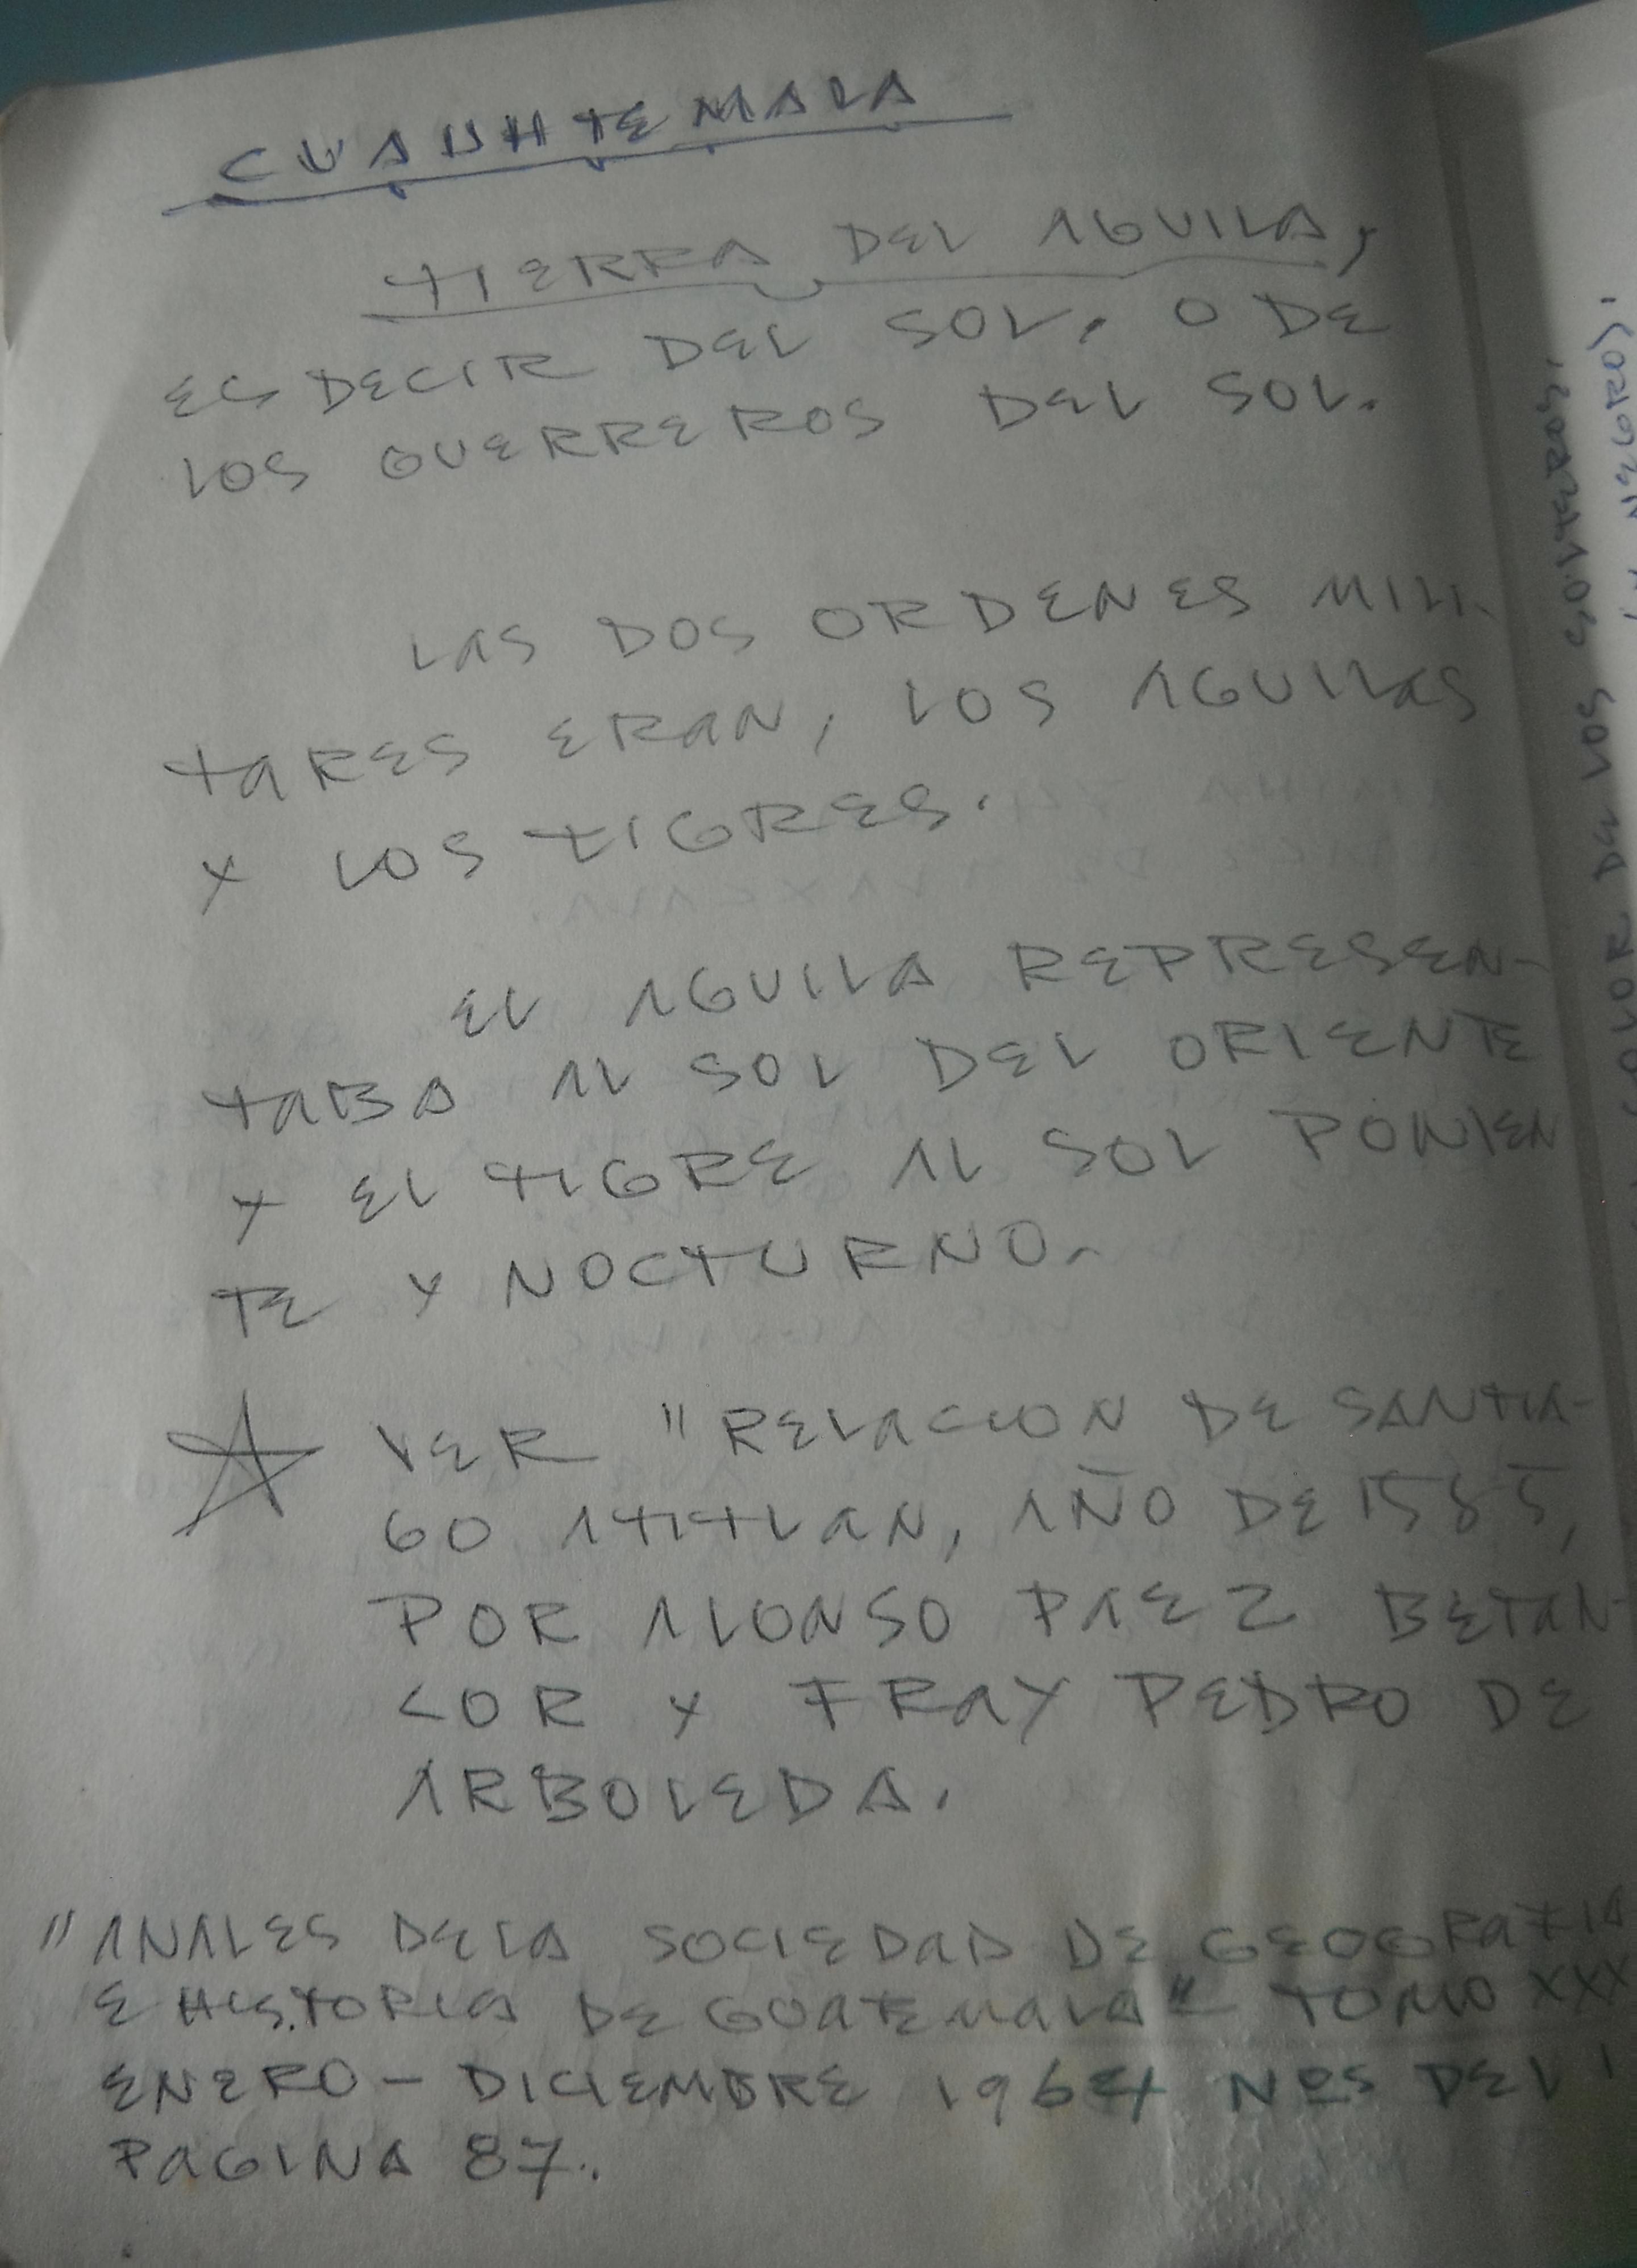 CUAUHTEMALA
TIERRA DEL AGUILA,
ES DECIR DEL SOL, O DE
LOS GUERREROS DEL SOL.
LAS DOS ORDENES MILI-
TARES ERAN, LOS AGUILAS
Y LOS TIGRES.
EL AGUILA REPRESEN-
TABA AL SOL DEL ORIENTE
Y EL TIGRE AL SOL PONIEN
TE Y NOCTURNO.
VER "RELACION DE SANTIA-
GO ATITLAN, AÑO DE 1585,
POR ALONSO PAEZ BETAN-
COR Y FRAY PEDRO DE
ARBOLEDA.
"ANALES DE LA SOCIEDAD DE GEOGRAFIA
E HISTORIA DE GUATEMALA" TOMO XXX
ENERO - DICIEMBRE 1964 NOS DEL 1
PAGINA 87.
SOLITARIOS.